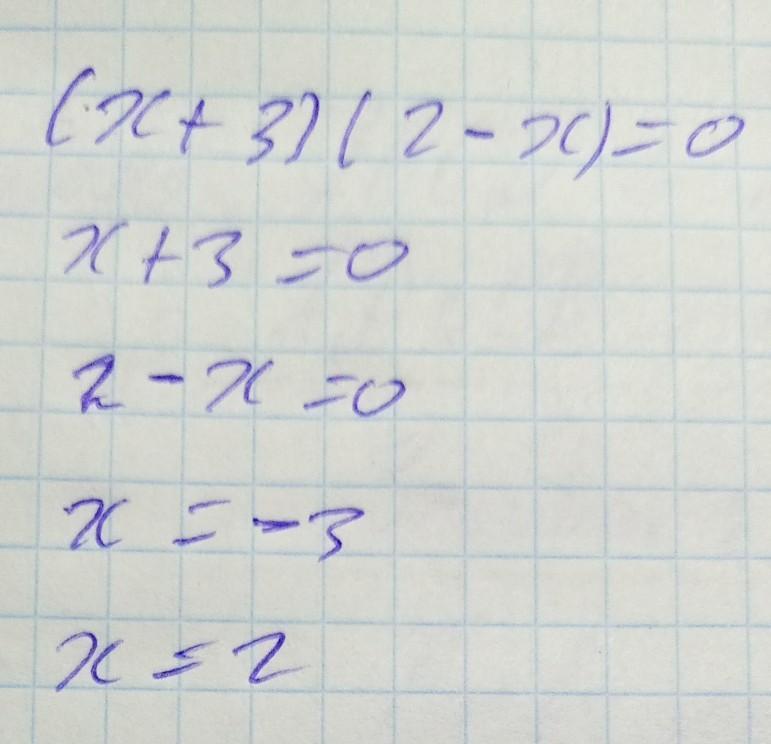 (x+3)(2-x)=0
x+3=0
2-x=0
x=-3
x=2